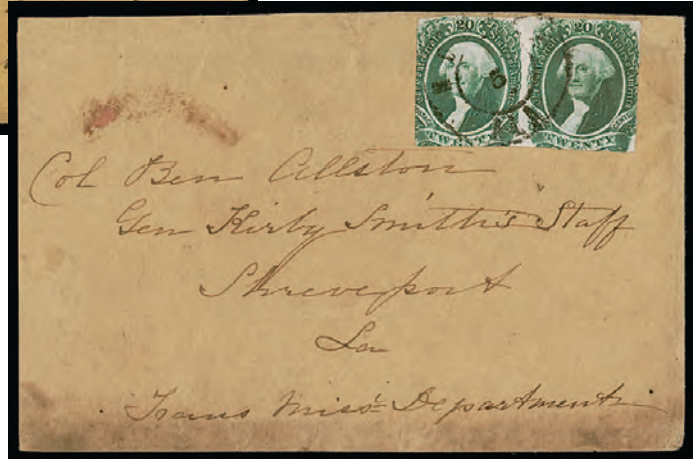 20 20
TWENTY TWENTY
5
Col Ben Allston
Gen Kirby Smith's Staff
Shreveport
La
Trans Miss Department